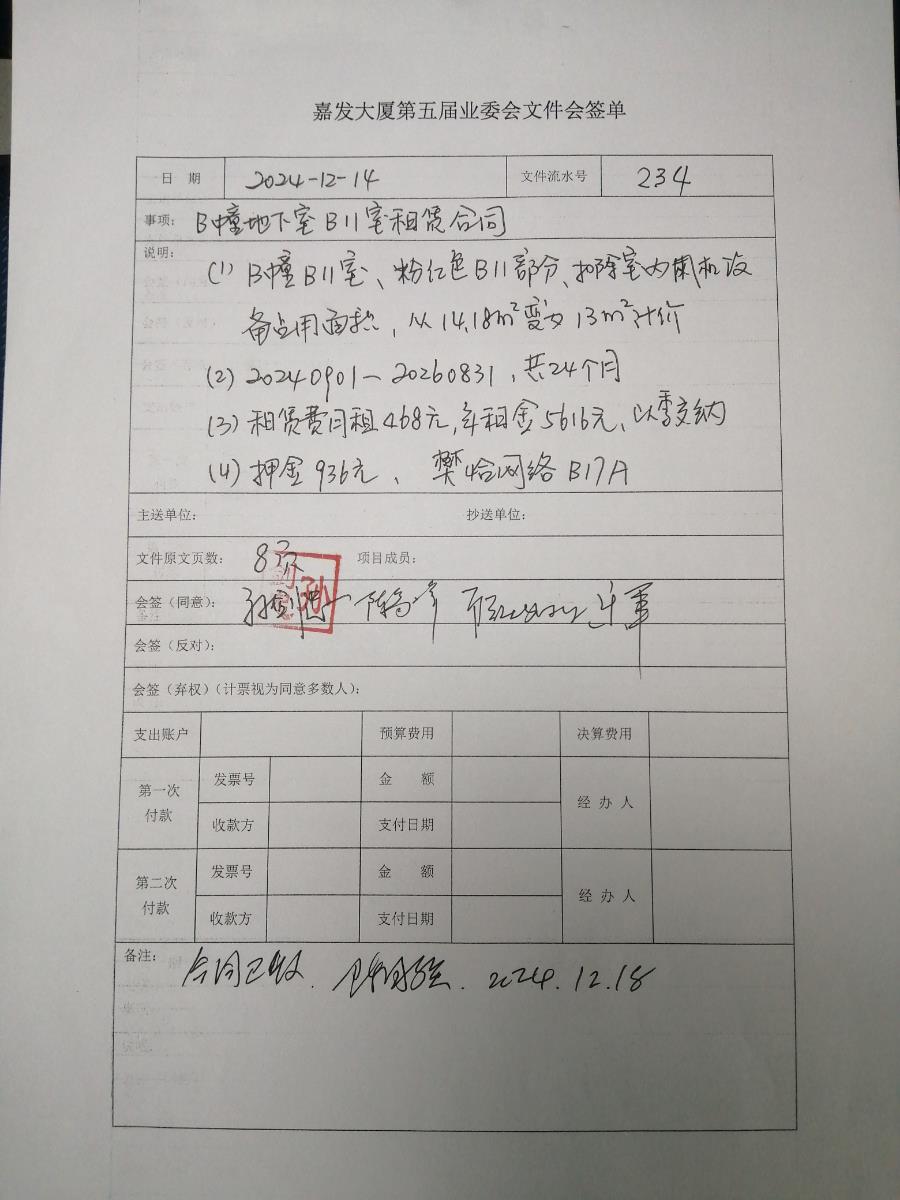 嘉发大厦第五届业委会文件会签单
日 期 2024-12-14 文件流水号 234
事项: B幢地下室B11室租赁合同
说明:
(1) B幢B11室、粉红色B11部分、扣除室内风机设
备占用面积, 从14.18m²变为13m²计价
(2) 20240901—20260831, 共24个月
(3) 租赁费月租468元, 年租金5616元, 以季交纳
(4) 押金936元、樊恰网络 B17A
主送单位: 抄送单位:
文件原文页数: 8页 项目成员:
会签(同意):
会签(反对):
会签(弃权)(计票视为同意多数人):
支出账户 预算费用 决算费用
第一次付款 发票号 金 额 经 办 人
收款方 支付日期
第二次付款 发票号 金 额 经 办 人
收款方 支付日期
备注: 合同已收. 2024.12.18